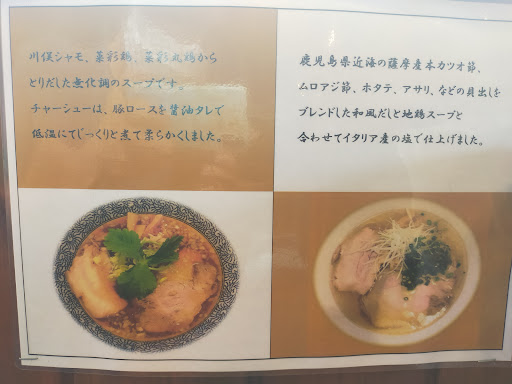 川俣シャモ、菜彩鶏、菜彩丸鶏から
とりだした無化調のスープです。
チャーシューは、豚ロースを醤油タレで
低温にてじっくりと煮て柔らかくしました。
鹿児島県近海の薩摩産本カツオ節、
ムロアジ節、ホタテ、アサリ、などの貝出しを
ブレンドした和風だしと地鶏スープと
合わせてイタリア産の塩で仕上げました。